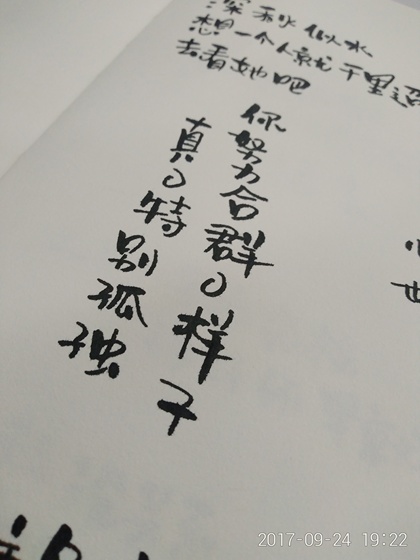 深秋似水
想一个人就千里迢
去看她吧
你努力合群の样子
真の特别孤独
也
2017-09-24 19:22